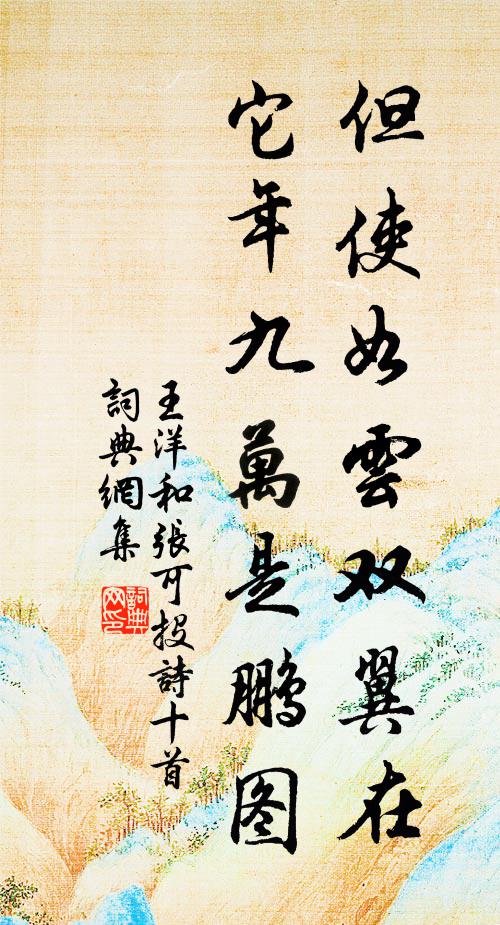 但使如雲双翼在
它年九萬是鹏图
王洋和張可投詩十首
詞典網集
詞典网印